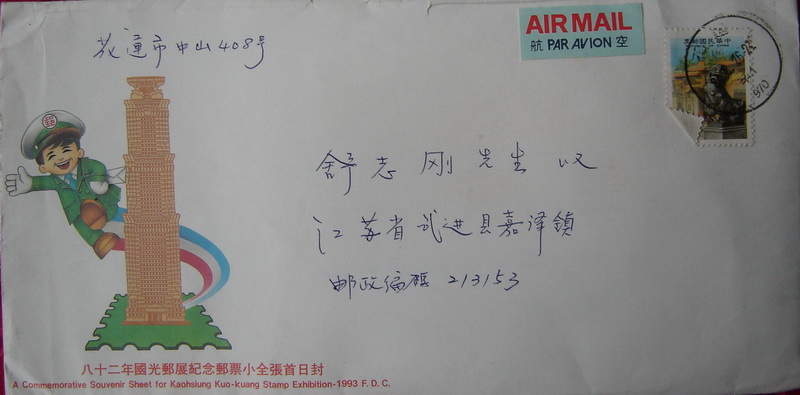 花蓮市中山408号
AIR MAIL
航 PAR AVION 空
中華民國郵票
970
舒志刚先生 收
江苏省武进县嘉泽鎮
邮政编码 213153
八十二年國光郵展紀念郵票小全張首日封
A Commemorative Souvenir Sheet for Kaohsiung Kuo-kuang Stamp Exhibition-1993 F. D. C.